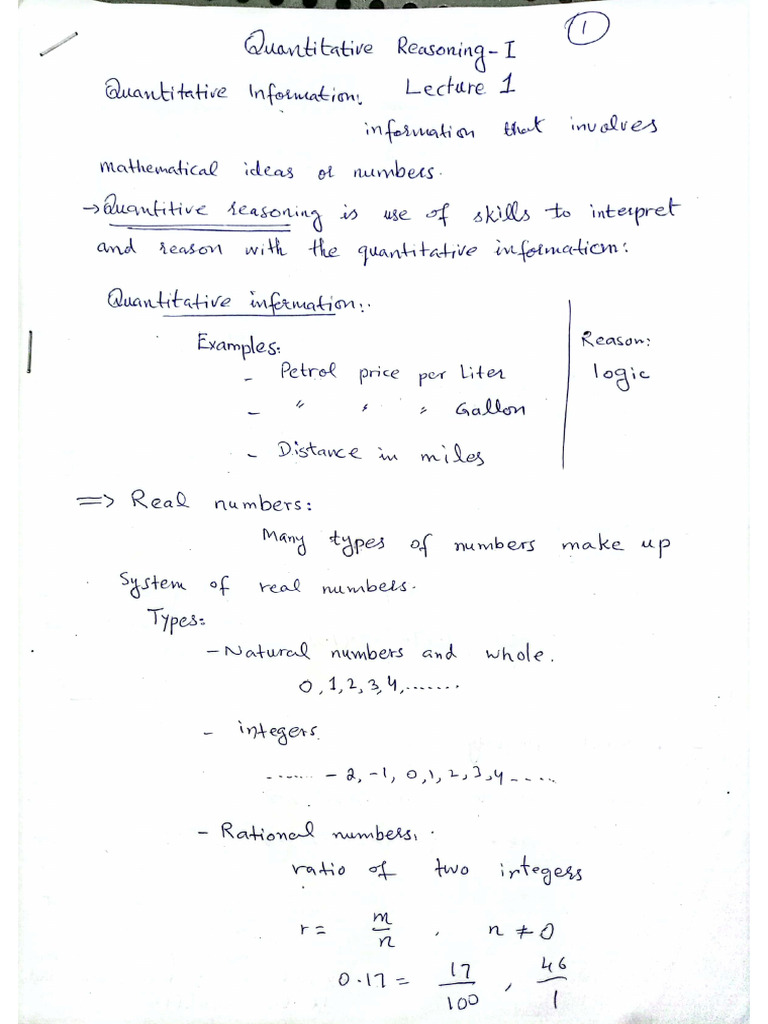 1
Quantitative Reasoning-I
Quantitative Information: Lecture 1
information that involves
mathematical ideas or numbers.
→Quantitive reasoning is use of skills to interpret
and reason with the quantitative information:
Quantitative information:.
Examples:
- Petrol price per Liter
- " " " Gallon
- Distance in miles
Reason:
logic
=> Real numbers:
Many types of numbers make up
System of real numbers.
Types:
- Natural numbers and whole.
0, 1, 2, 3, 4, .......
- integers.
...... - 2, -1, 0, 1, 2, 3, 4 .....
- Rational numbers,.
ratio of two integers
r = m/n , n ≠ 0
0.17 = 17/100 , 46/1